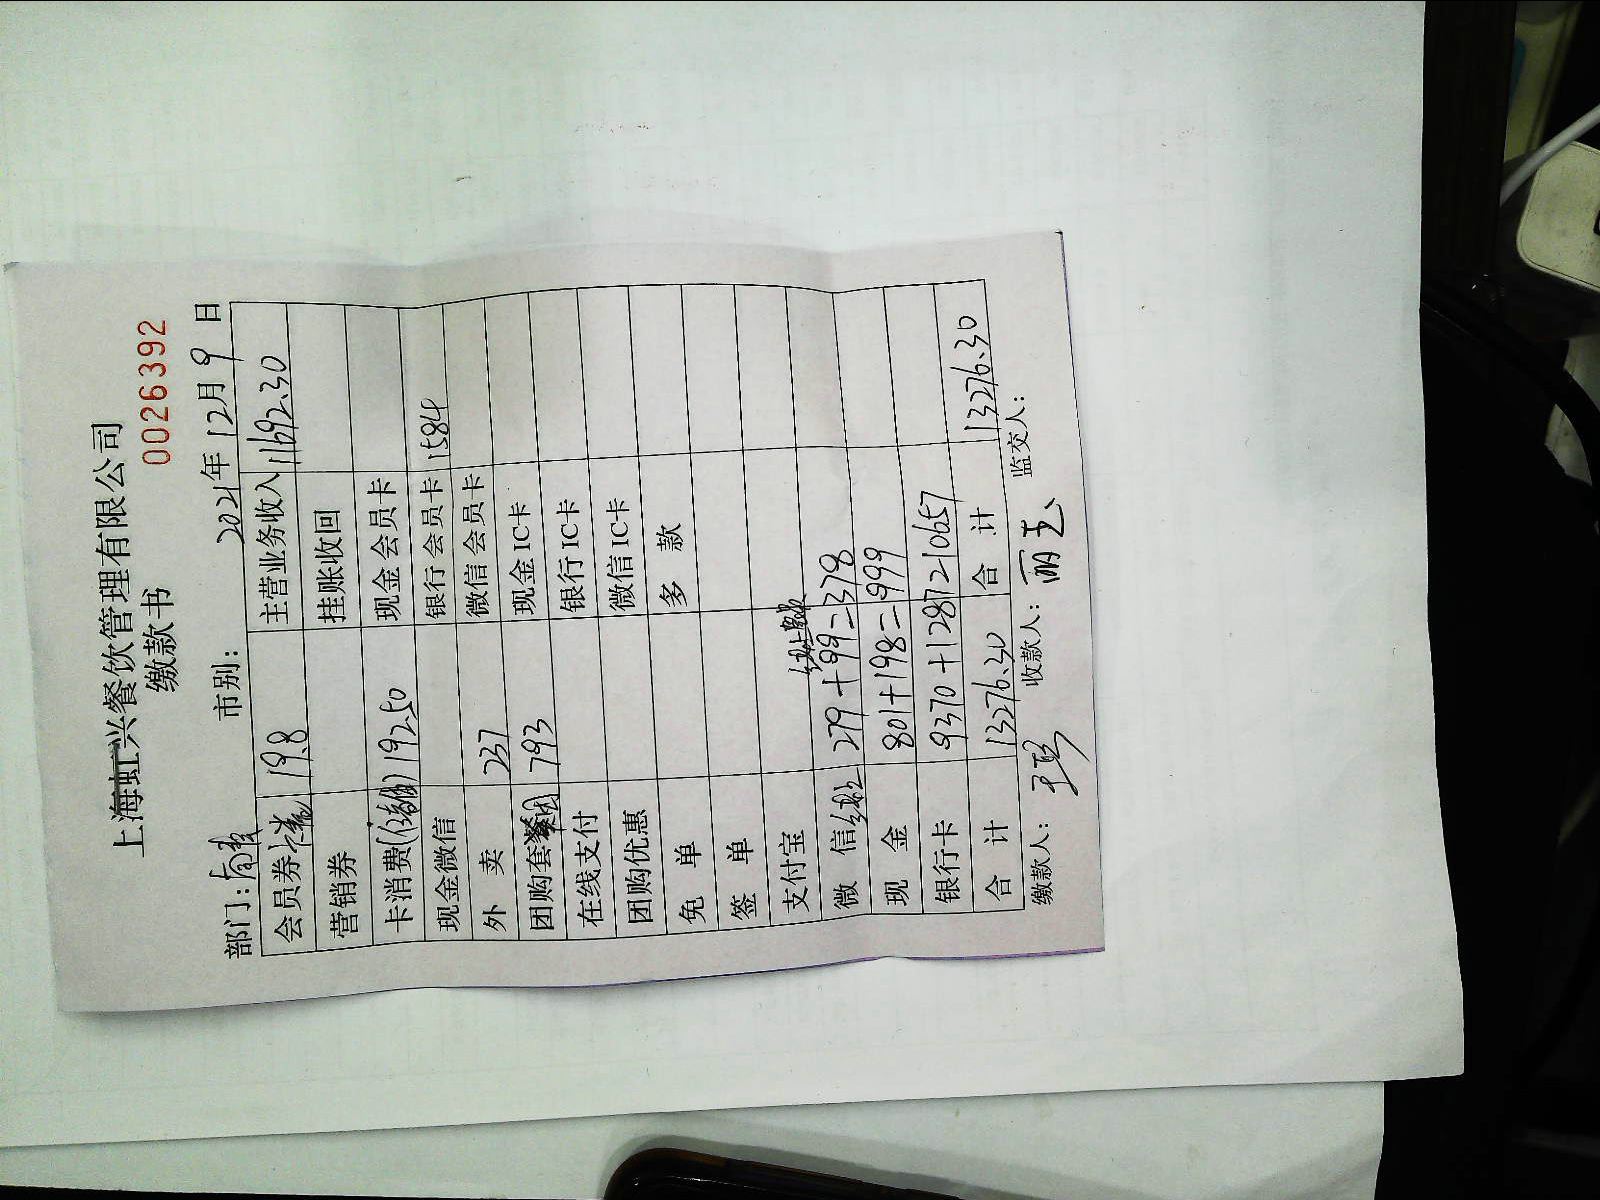 上海虹兴餐饮管理有限公司
缴款书 0026392
部门: 市别: 2021年12月9日
会员券 19.8 主营业务收入 11692.30
营销券 挂账收回
卡消费 192.50 现金会员卡
现金微信 银行会员卡 1584
外 卖 237 微信会员卡
团购套餐 793 现金IC卡
在线支付 银行IC卡
团购优惠 微信IC卡
免 单 多 款
签 单
支付宝
微 信 279+99=378
现 金 801+198=999
银行卡 9370+1287=10657
合 计 13276.30 合 计 13276.30
缴款人: 收款人: 丽 监交人: